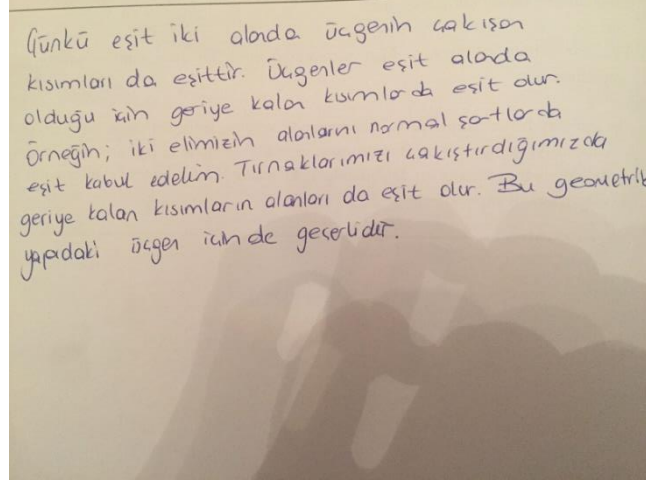 Çünkü eşit iki alanda üçgenin çakışan
kısımları da eşittir. Üçgenler eşit alanda
olduğu için geriye kalan kısımlarda eşit olur.
Örneğin; iki elimizin alanlarını normal şartlarda
eşit kabul edelim. Tırnaklarımızı çakıştırdığımızda
geriye kalan kısımların alanları da eşit olur. Bu geometrik
yapıdaki üçgen için de geçerlidir.